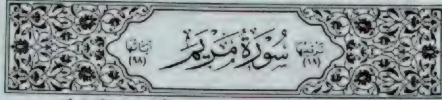 ترتيبها سُورَةُ مَرْيَم آياتها
(١٩) (٩٨)